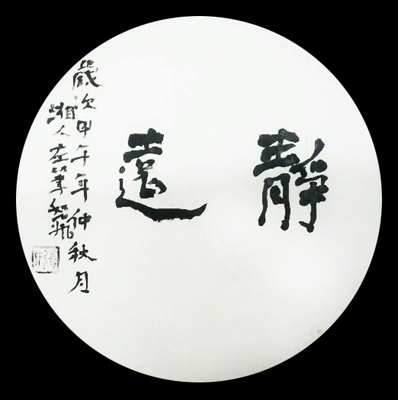 靜遠
歲次甲午年仲秋月
湘人左筆